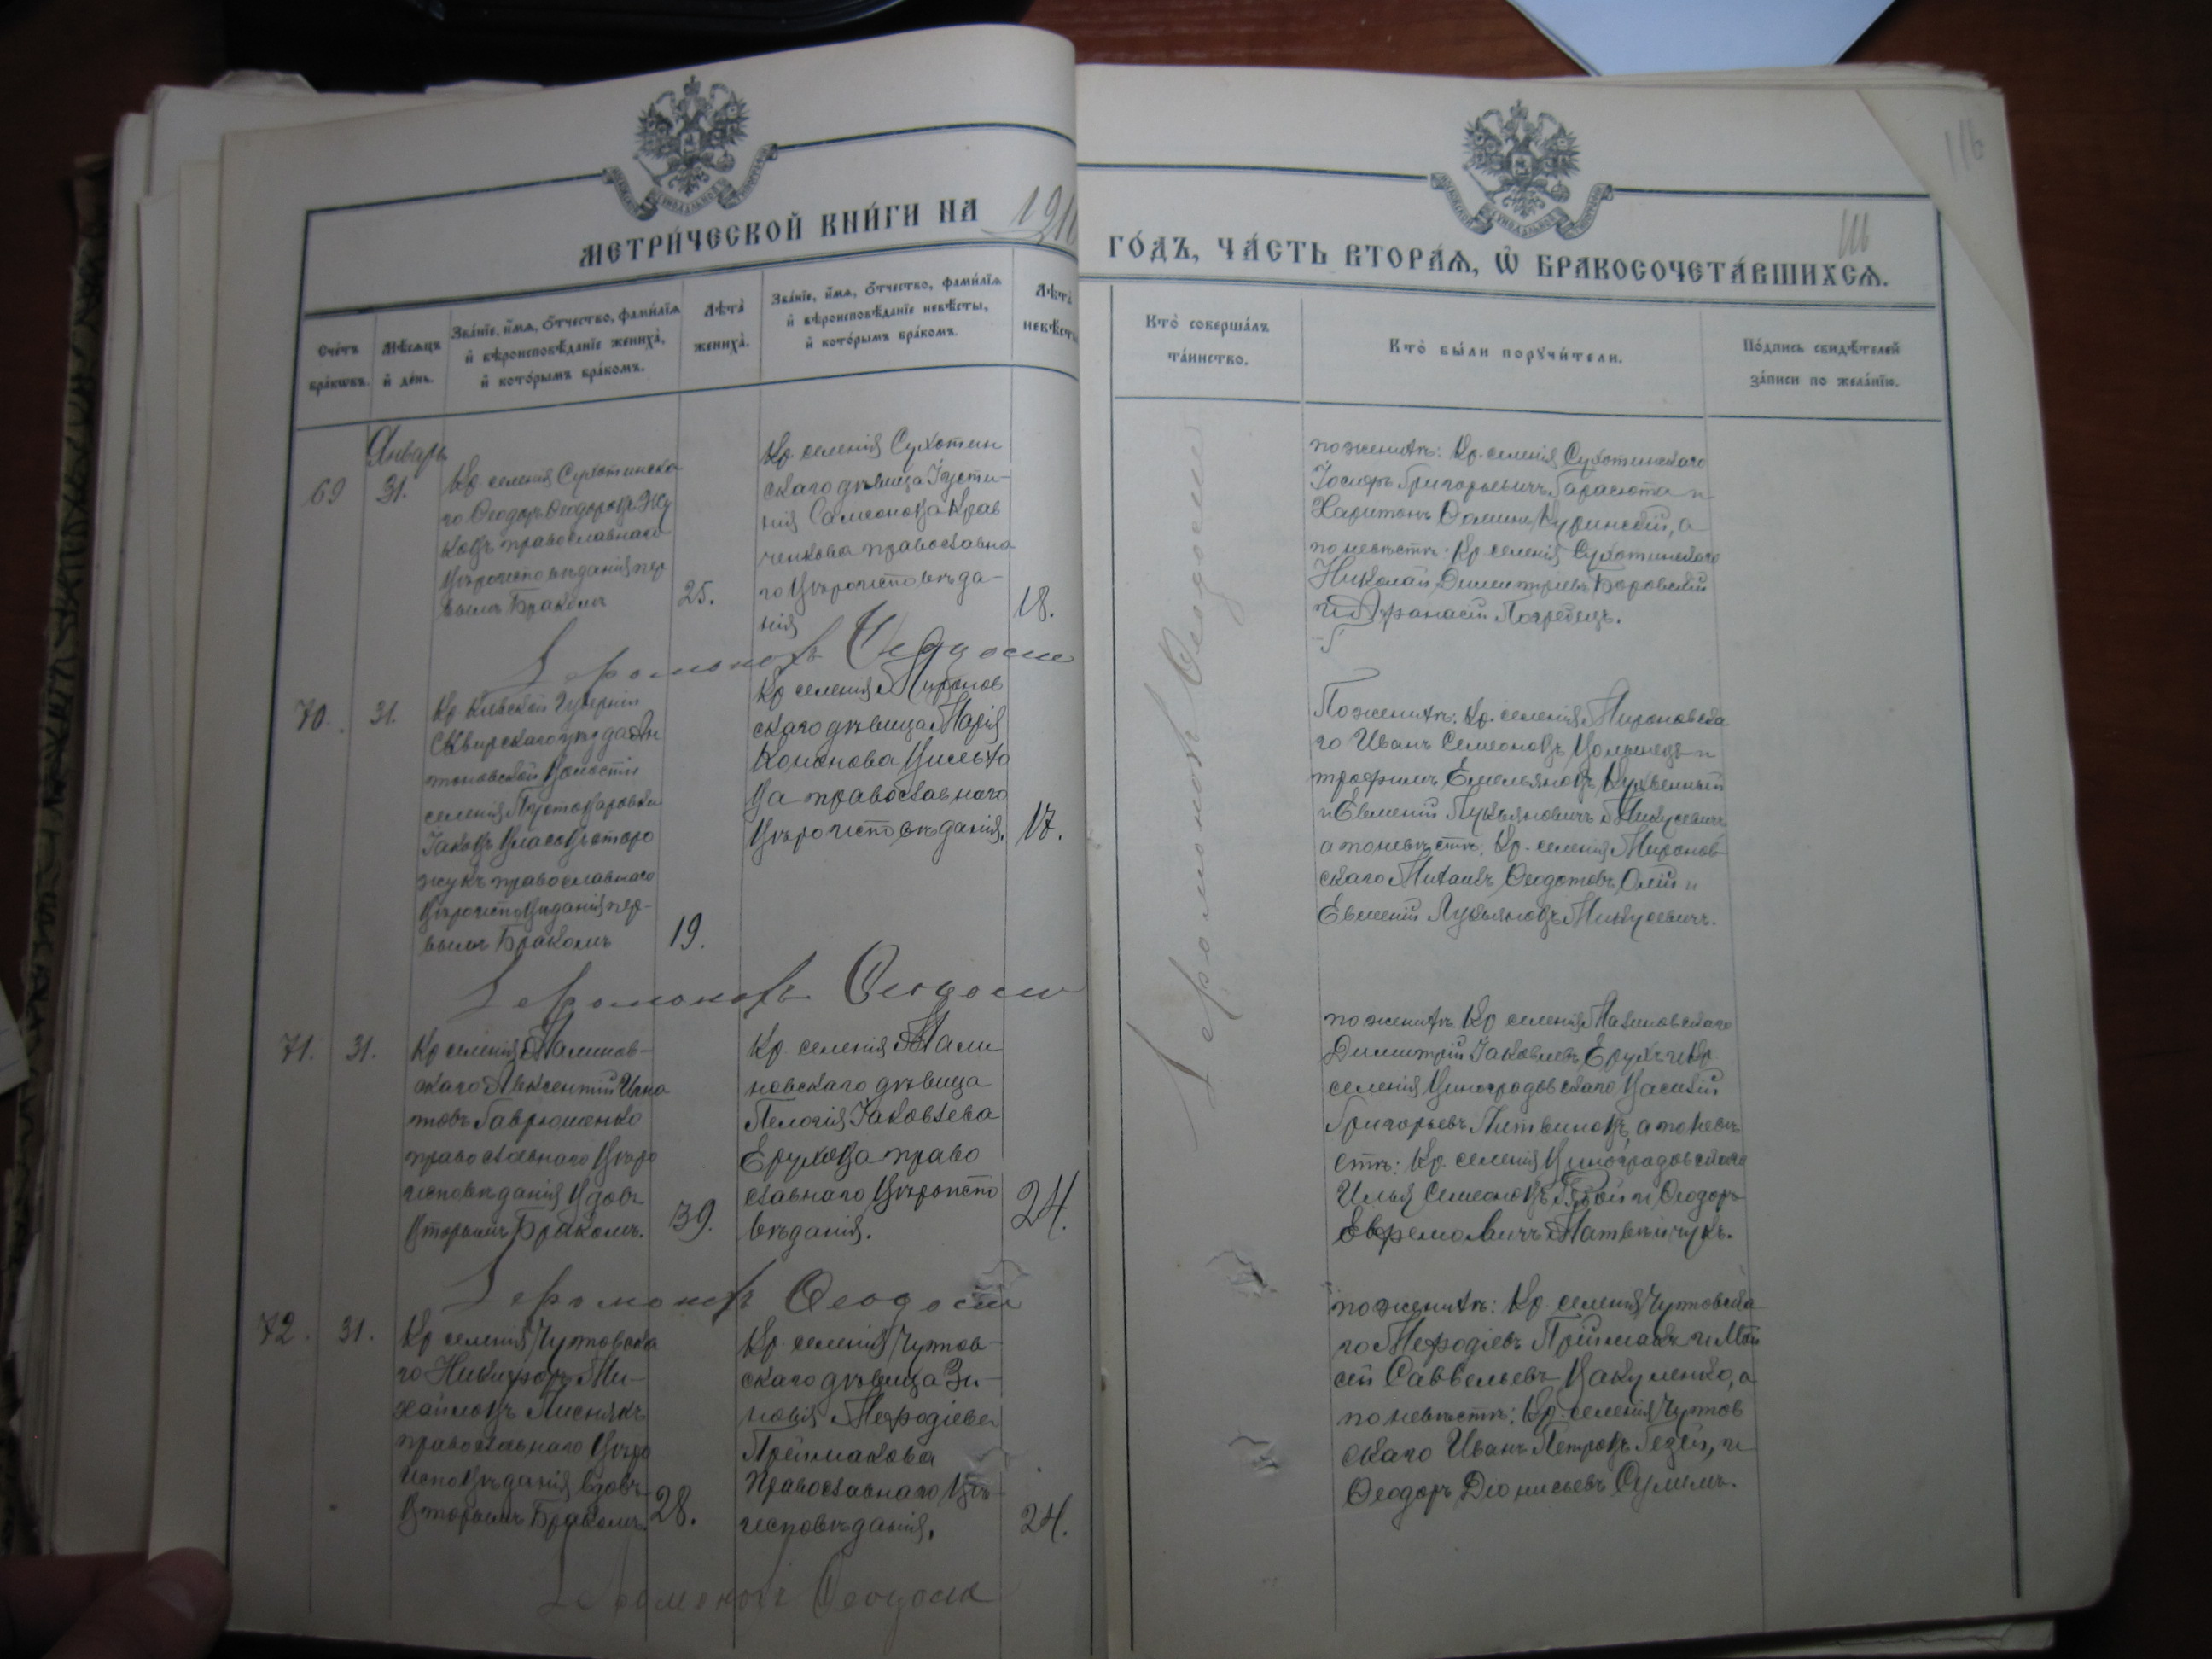 МЕТРИ́ЧЕСКОЙ КНИ́ГИ НА 1910
ГО́ДЪ, ЧА́СТЬ ВТОРА́Ѧ, Ѡ҆ БРАКОСОЧЕТА́ВШИХСѦ.
116
Сче́тъ бра́кѡвъ.
Мѣ́сѧцъ и҆ де́нь.
Зва́нїе, и҆́мѧ, ѻ҆́тчество, фами́лїѧ и҆ вѣроисповѣ́данїе жениха̀, и҆ кото́рымъ бра́комъ.
Лѣта̀ жениха̀.
Зва́нїе, и҆́мѧ, ѻ҆́тчество, фами́лїѧ и҆ вѣроисповѣ́данїе невѣ́сты, и҆ кото́рымъ бра́комъ.
Лѣта̀ невѣ́ст
Кто̀ соверша́лъ та́инство.
Кто̀ бы́ли порꙋчи́тели.
По́дпись свидѣ́телей за́писи по жела́нїю.
Январь
69
31.
Кр. селенія Сухотинска
го Ѳеодоръ Ѳеодоровъ Жу
ковъ православнаго
вѣроисповѣданія пер
вымъ бракомъ
25.
Кр. селенія Сухотин
скаго дѣвица Іусти-
нія Самсонова Крав
ченкова православна
го вѣроисповѣда-
нія
18.
по женихѣ: Кр. селенія Сухотинскаго
Іосифъ Григорьевичъ Гарасюта и
Харитонъ Ѳоминъ Куринскій, а
по невѣстѣ: Кр. селенія Сухотинскаго
Николай Димитріевъ Боровскій
и Афанасій Погребецъ.
Іеромонахъ Ѳеодосій
70.
31.
Кр. Кіевской Губерніи
Сквирскаго уѣзда Ан
тоновской волости
селенія Пустоваровки
Іаковъ Власовъ Сторо
жукъ православнаго
вѣроисповѣданія пер-
вымъ бракомъ
19.
Кр. селенія Миронов
скаго дѣвица Марія
Кононова
ва православнаго
вѣроисповѣданія.
17.
По женихѣ: Кр. селенія Мироновска
го Иванъ Семеоновъ и
трофимъ Емельяновъ
и Евменій Лукьяновичъ Микусевичъ
а по невѣстѣ: Кр. селенія Миронов
скаго Ѳеодотовъ Олій и
Евменій Лукьяновъ Микусевичъ.
Іеромонахъ Ѳеодосій
71.
31.
Кр селенія Малинов-
скаго Авксентій Игна
товъ Гаврюшенко
православнаго вѣро
исповѣданія вдовъ
вторымъ бракомъ.
39.
Кр. селенія Мали
новскаго дѣвица
Пелагія Іаковлева
Ерухова право
славнаго вѣроиспо
вѣданія.
24.
по женихѣ Кр селенія Малиновскаго
Димитрій Іаковлевъ Ерухъ и Кр
селенія Виноградовскаго Василій
Григорьевъ Литвиновъ, а по невѣ
стѣ: Кр. селенія Виноградовскаго
Илья Семеоновъ и Ѳеодоръ
Евфремовичъ Матвѣйчукъ.
Іеромонахъ Ѳеодосій
72.
31.
Кр селенія Чутовска
го Никифоръ Ми-
хайловъ Лиснякъ
православнаго вѣро
исповѣданія вдовъ
вторымъ бракомъ.
28.
Кр. селенія Чутов-
скаго дѣвица Зи-
новія Мефодіева
Приймакова
православнаго вѣ-
исповѣданія.
24.
по женихѣ: Кр. селенія Чутовска
го Мефодіевъ Приймакъ и Мои
сей Саввельевъ Вакуленко, а
по невѣстѣ: Кр. селенія Чутов
скаго Иванъ Петровъ и
Ѳеодоръ Діонисьевъ
Іеромонахъ Ѳеодосій
Іеромонахъ Ѳеодосій